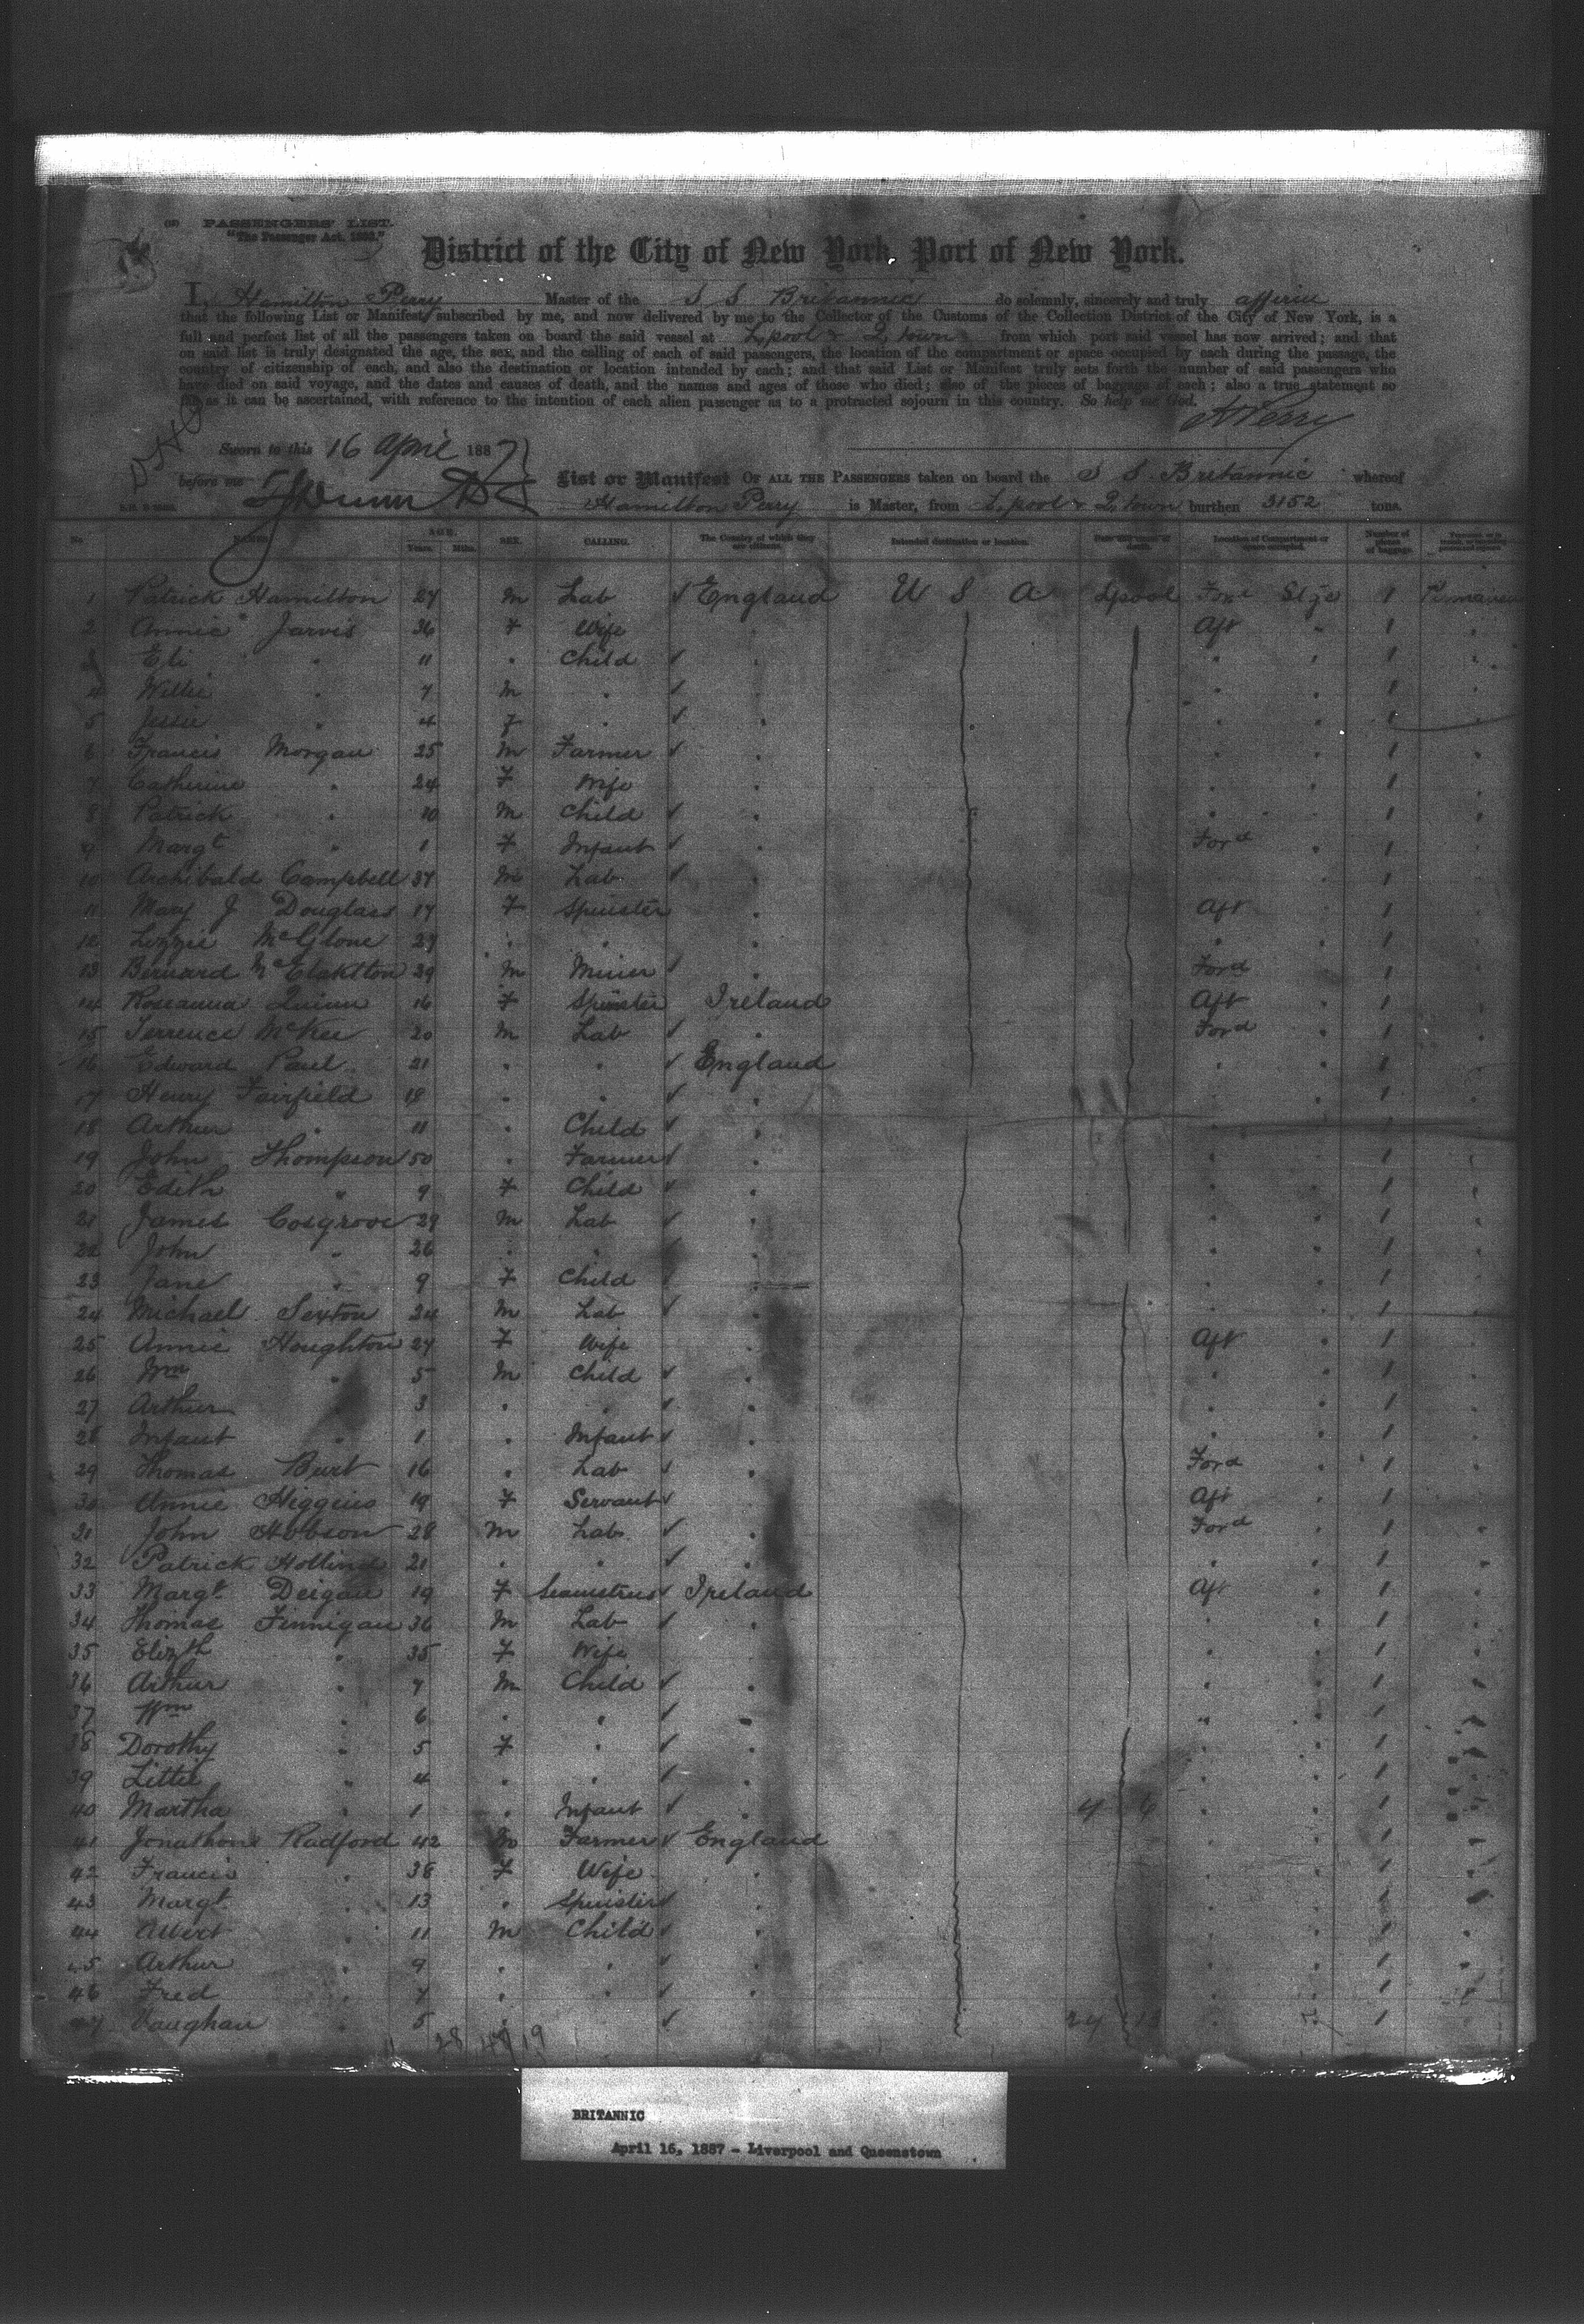 OR PASSENGERS' LIST.
"The Passenger Act, 1882."
District of the City of New York, Port of New York.
I, Hamilton Perry Master of the S S Britannic do solemnly, sincerely and truly affirm
that the following List or Manifest, subscribed by me, and now delivered by me to the Collector of the Customs of the Collection District of the City of New York, is a
full and perfect list of all the passengers taken on board the said vessel at L,pool & Q,town from which port said vessel has now arrived; and that
on said list is truly designated the age, the sex, and the calling of each of said passengers, the location of the compartment or space occupied by each during the passage, the
country of citizenship of each, and also the destination or location intended by each; and that said List or Manifest truly sets forth the number of said passengers who
have died on said voyage, and the dates and causes of death, and the names and ages of those who died; also of the pieces of baggage of each; also a true statement so
far as it can be ascertained, with reference to the intention of each alien passenger as to a protracted sojourn in this country. So help me God.
H Perry
Sworn to this 16 April 1887
before me
List or Manifest OF ALL THE PASSENGERS taken on board the S S Britannic whereof
Hamilton Perry is Master, from L,pool & Q,town burthen 3152 tons.
No. NAMES. AGE. Years. Mths. SEX. CALLING. The Country of which they are citizens. Intended destination or location. Date and cause of death. Location of Compartment or space occupied. Number of pieces of baggage.
1 Patrick Hamilton 27 M Lab England U S A Lpool Ford Stge 1
2 Annie Jarvis 36 F Wife Aft 1
3 Eli 11 Child 1
4 Willie 7 M 1
5 Jessie 4 F 1
6 Francis Morgan 25 M Farmer 1
7 Catherine 24 F Wife 1
8 Patrick 10 M Child 1
9 Margt 1 F Infant Ford 1
10 Archibald Campbell 37 M Lab 1
11 Mary J Douglass 17 F Spinster Aft 1
12 Lizzie McGlone 29 1
13 Bernard 39 M Miner Ford 1
14 Roseanna Quinn 16 F Spinster Ireland Aft 1
15 Terrence McKee 20 M Lab Ford 1
16 Edward Paul 21 England 1
17 Henry Fairfield 18 1
18 Arthur 11 Child 1
19 John Thompson 50 Farmer 1
20 Edith 9 F Child 1
21 James Cosgrove 29 M Lab 1
22 John 26 1
23 Jane 9 F Child 1
24 Michael Sexton 24 M Lab 1
25 Annie Houghton 27 F Wife Aft 1
26 Wm 5 M Child 1
27 Arthur 3 1
28 Infant 1 Infant 1
29 Thomas Burt 16 Lab Ford 1
30 Annie Higgins 19 F Servant Aft 1
31 John Hobson 28 M Lab Ford 1
32 Patrick Hollins 21 1
33 Margt Deigan 19 F Seamstress Ireland Aft 1
34 Thomas Finnigan 36 M Lab 1
35 Elizth 35 F Wife 1
36 Arthur 7 M Child 1
37 Wm 6 1
38 Dorothy 5 F 1
39 Lettie 4 1
40 Martha 1 Infant 4 6 1
41 Jonathon Radford 42 M Farmer England 1
42 Francis 38 F Wife 1
43 Margt 13 Spinster 1
44 Albert 11 M Child 1
45 Arthur 9 1
46 Fred 7 1
47 Vaughan 5 1
28 47 19
BRITANNIC
April 16, 1887 - Liverpool and Queenstown